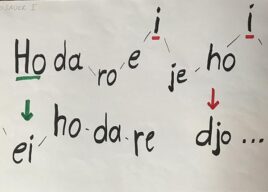 Ho da ro e i je ho i
ei ho-da-re djo ...